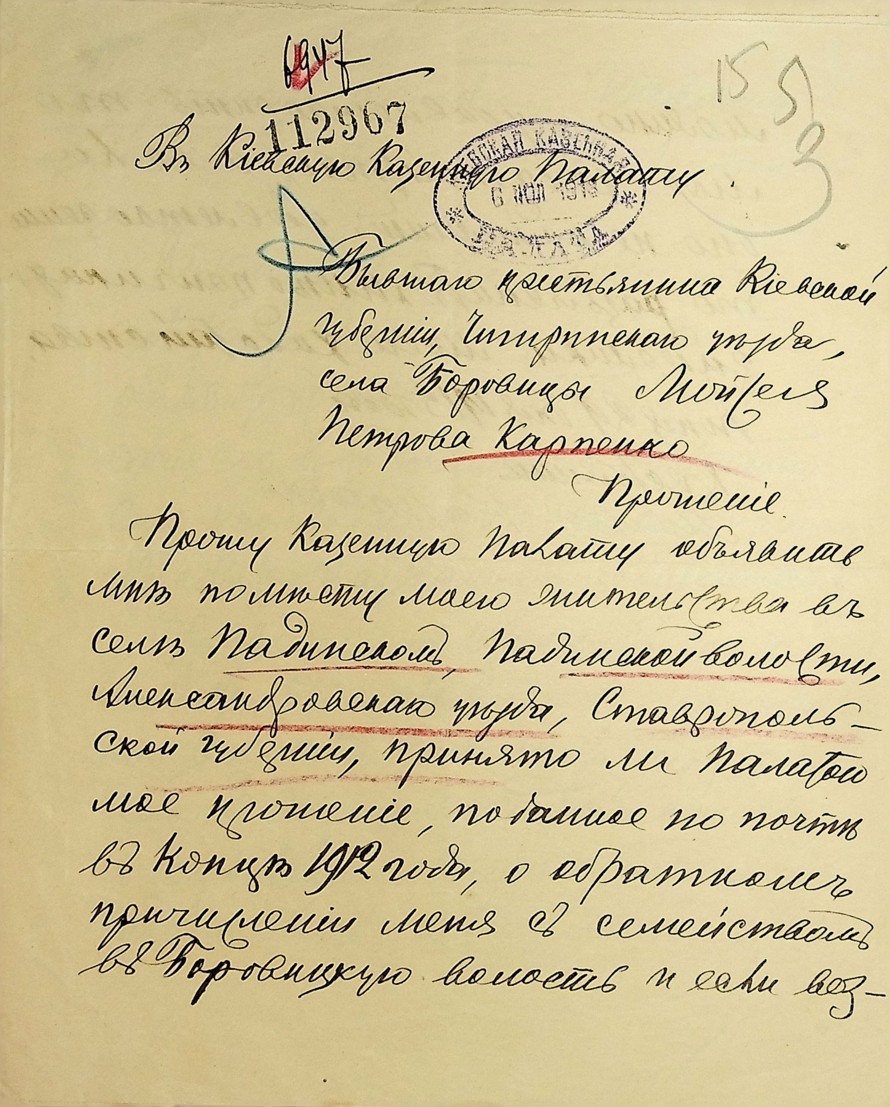 6947
112967
15 5
3
Въ Кіевскую Казенную Палату
КІЕВСКАЯ КАЗЕННАЯ
6 ІЮЛ 1913
ПАЛАТА
Бывшаго крестьянина Кіевской
губерніи, Чигиринскаго уѣзда,
села Боровицы Мойсея
Петрова Карпенко
Прошеніе.
Прошу Казенную Палату объявить
мнѣ по мѣсту моего жительства въ
селѣ Падинскомъ, Падинской волости,
Александровскаго уѣзда, Ставрополь-
ской губерніи, принято ли Палатой
мое прошеніе, поданное по почтѣ
въ Концѣ 1912 года, о обратномъ
причисленіи меня съ семействомъ
въ Боровицкую волость и если воз-